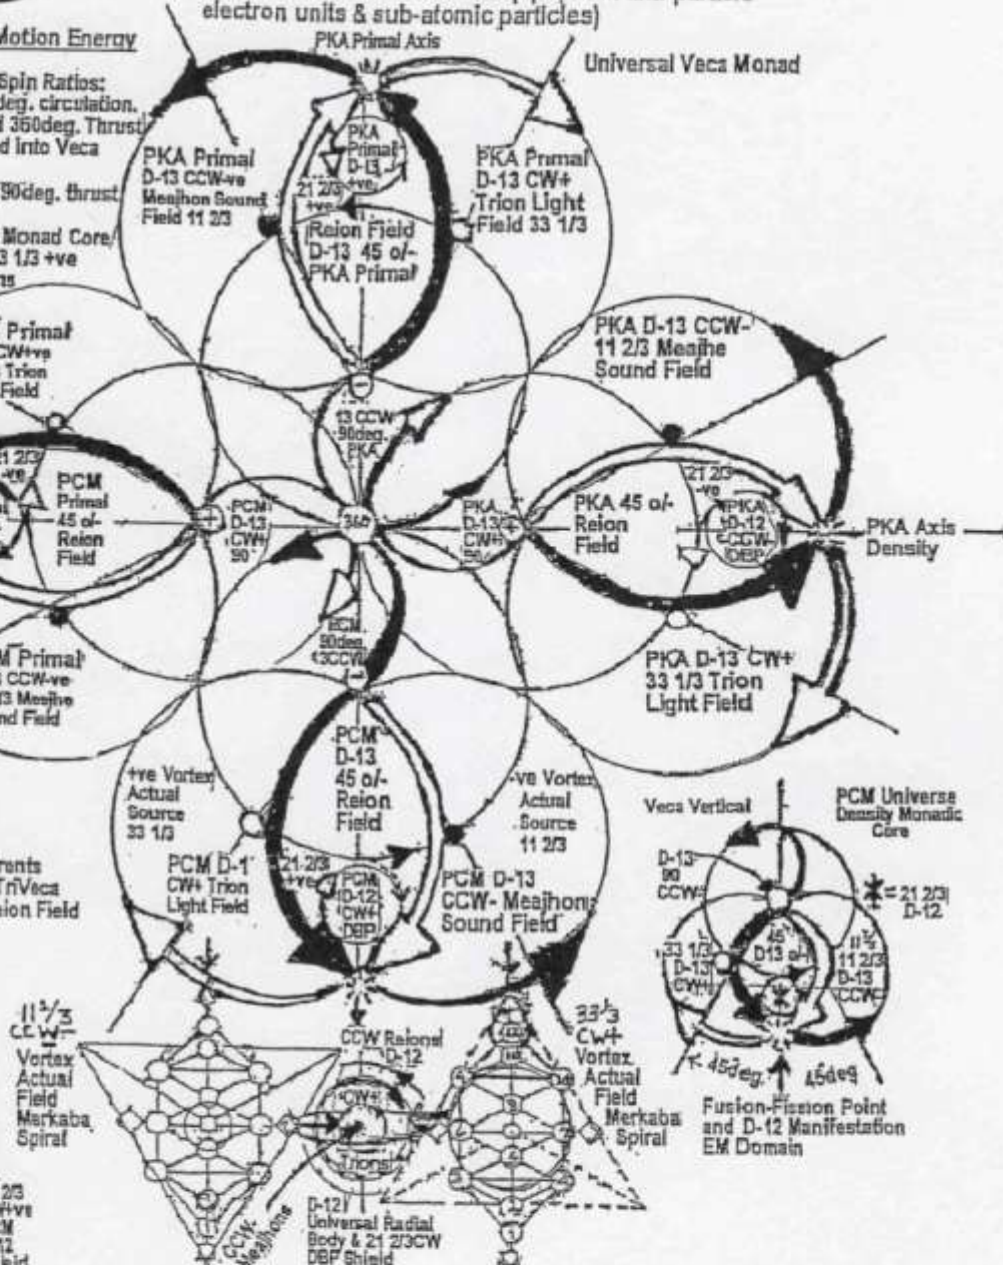 electron units & sub-atomic particles)
Motion Energy
PKA Primal Axis
Universal Veca Monad
Spin Ratios:
deg. circulation.
360deg. Thrust
d into Veca
90deg. thrust
Monad Core/
3 1/3 +ve
PKA Primal
D-13 CCW-ve
Meajhon Sound
Field 11 2/3
PKA
Primal
D-13
+ve
21 2/3
+ve
Reion Field
D-13 45 o/-
PKA Primal
PKA Primal
D-13 CW+
Trion Light
Field 33 1/3
Primal
CW+ve
Trion
Field
PKA D-13 CCW-
11 2/3 Meajhe
Sound Field
13 CCW
90deg.
PKA
21 2/3
-ve
PCM
Primal
45 o/-
Reion
Field
PCM
D-13
CW+
90
360
PKA
D-13
CW+
90
PKA 45 o/-
Reion
Field
21 2/3
-ve
PKA
D-12
CCW-
DBP
PKA Axis
Density
PCM
90deg.
13CCW
M Primal
CCW-ve
/3 Meajhe
nd Field
PKA D-13 CW+
33 1/3 Trion
Light Field
PCM
D-13
45 o/-
Reion
Field
+ve Vortex
Actual
Source
33 1/3
-ve Vortex
Actual
Source
11 2/3
PCM D-1
CW+ Trion
Light Field
21 2/3
+ve
PCM
D-12
CW+
DBP
PCM D-13
CCW- Meajhon
Sound Field
rents
TriVeca
ion Field
Veca Vertical
PCM Universe
Density Monadic
Core
D-13
90
CCW-
= 21 2/3
D-12
33 1/3
D-13
CW+
45
D13 o/-
11 2/3
D-13
CCW-
45deg.
45deg
Fusion-Fission Point
and D-12 Manifestation
EM Domain
11 2/3
CCW-
Vortex
Actual
Field
Merkaba
Spiral
CCW Reions
D-12
CW+
Trions
33 1/3
CW+
Vortex
Actual
Field
Merkaba
Spiral
CCW-
Meajhons
D-12
Universal Radial
Body & 21 2/3CW
DBP Shield
2/3
+ve